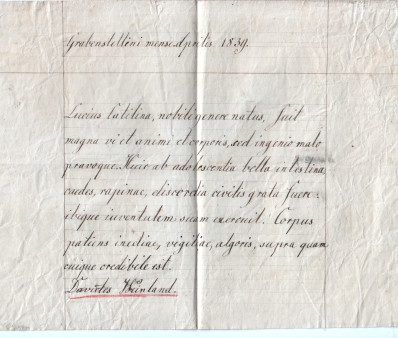 Grabenstettini mense Aprilis. 1839.
Lucius Catilina, nobili genere natus, fuit
magna vi et animi et corporis, sed ingenio malo
pravoque. Huic ab adolescentia bella intestina,
caedes, rapinae, discordia civilis grata fuere:
ibique iuventutem suam exercuit. Corpus
patiens inediae, vigiliae, algoris, supra quam
cuique credibile est.